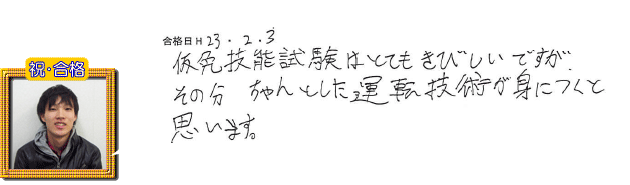 合格日 H 23.2.3
祝・合格
仮免技能試験はとてもきびしいですが
その分 ちゃんとした運転技術が身につくと
思います。